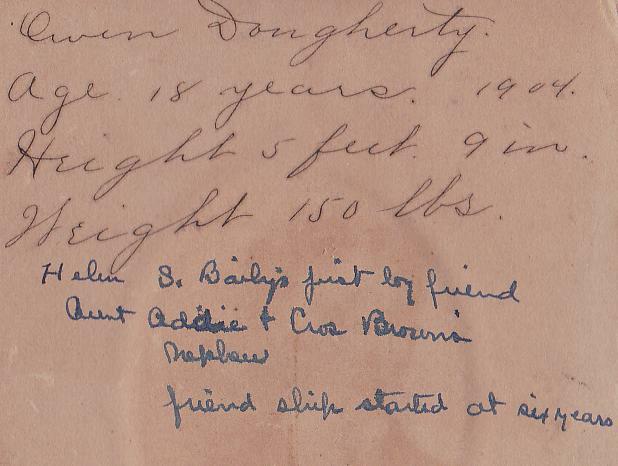 Owen Dougherty.
Age 18 years. 1904.
Height 5 feet. 9 in.
Weight 150 lbs.
Helen S. Baily's first boy friend
Aunt Addie & Brown's
Nephew
friend ship started at six years